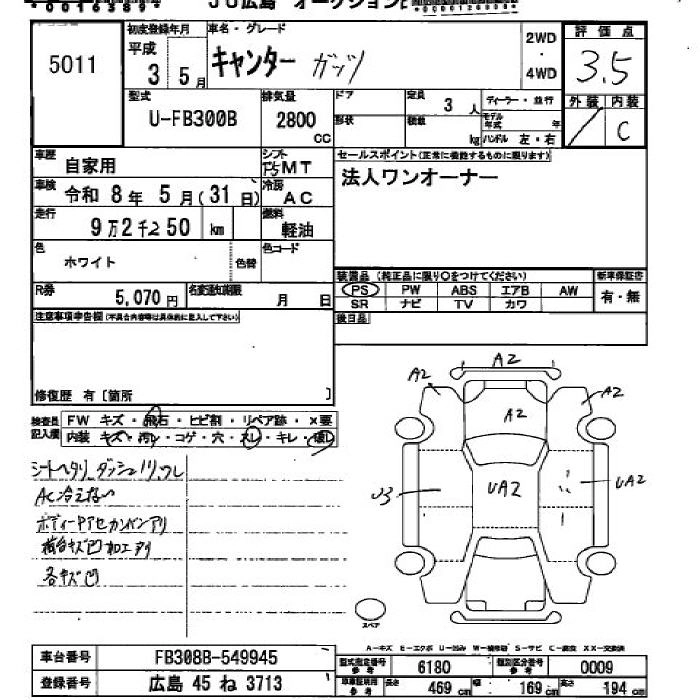 JU広島 オークション
5011
初度登録年月 車名・グレード
平成 3 5月 キャンター ガッツ
2WD・4WD
評価点 3.5
外装 内装 C
型式 U-FB300B
排気量 2800 CC
ドア 形状
定員 3 人
積載 kg
ディーラー・並行
モデル年式 年
ハンドル 左・右
車歴 自家用
シフト F5MT
セールスポイント(正常に機能するものに限ります)
法人ワンオーナー
車検 令和 8年 5月(31日)
冷房 AC
走行 9万2千250 km
燃料 軽油
色 ホワイト 色替 色コード
装備品 (純正品に限り○をつけてください) 新車保証書
PS PW ABS エアB AW 有・無
SR ナビ TV カワ
R券 5,070円 名変通知期限 月 日
注意事項申告欄(不具合内容等は具体的に記入して下さい)
後日品
修復歴 有〔箇所 〕
検査員記入欄 FW キズ・飛石・ヒビ割・リペア跡・×要
内装 キズ・汚レ・コゲ・穴・スレ・キレ・壊レ
シートヘタリ ダッシュ
AC冷えない
荷台キズ凹加工アリ
各キズ凹
A2
A2 A2
A2
U3 UA2 UA2
スペア
A-キズ E-エクボ U-凹み W-補修跡 S-サビ C-腐食 XX-交換済
車台番号 FB308B-549945
型式指定番号 参考 6180 類別区分番号 参考 0009
登録番号 広島 45 ね 3713
車車証明用 参考 長さ 469 cm 幅 169 cm 高さ 194 cm